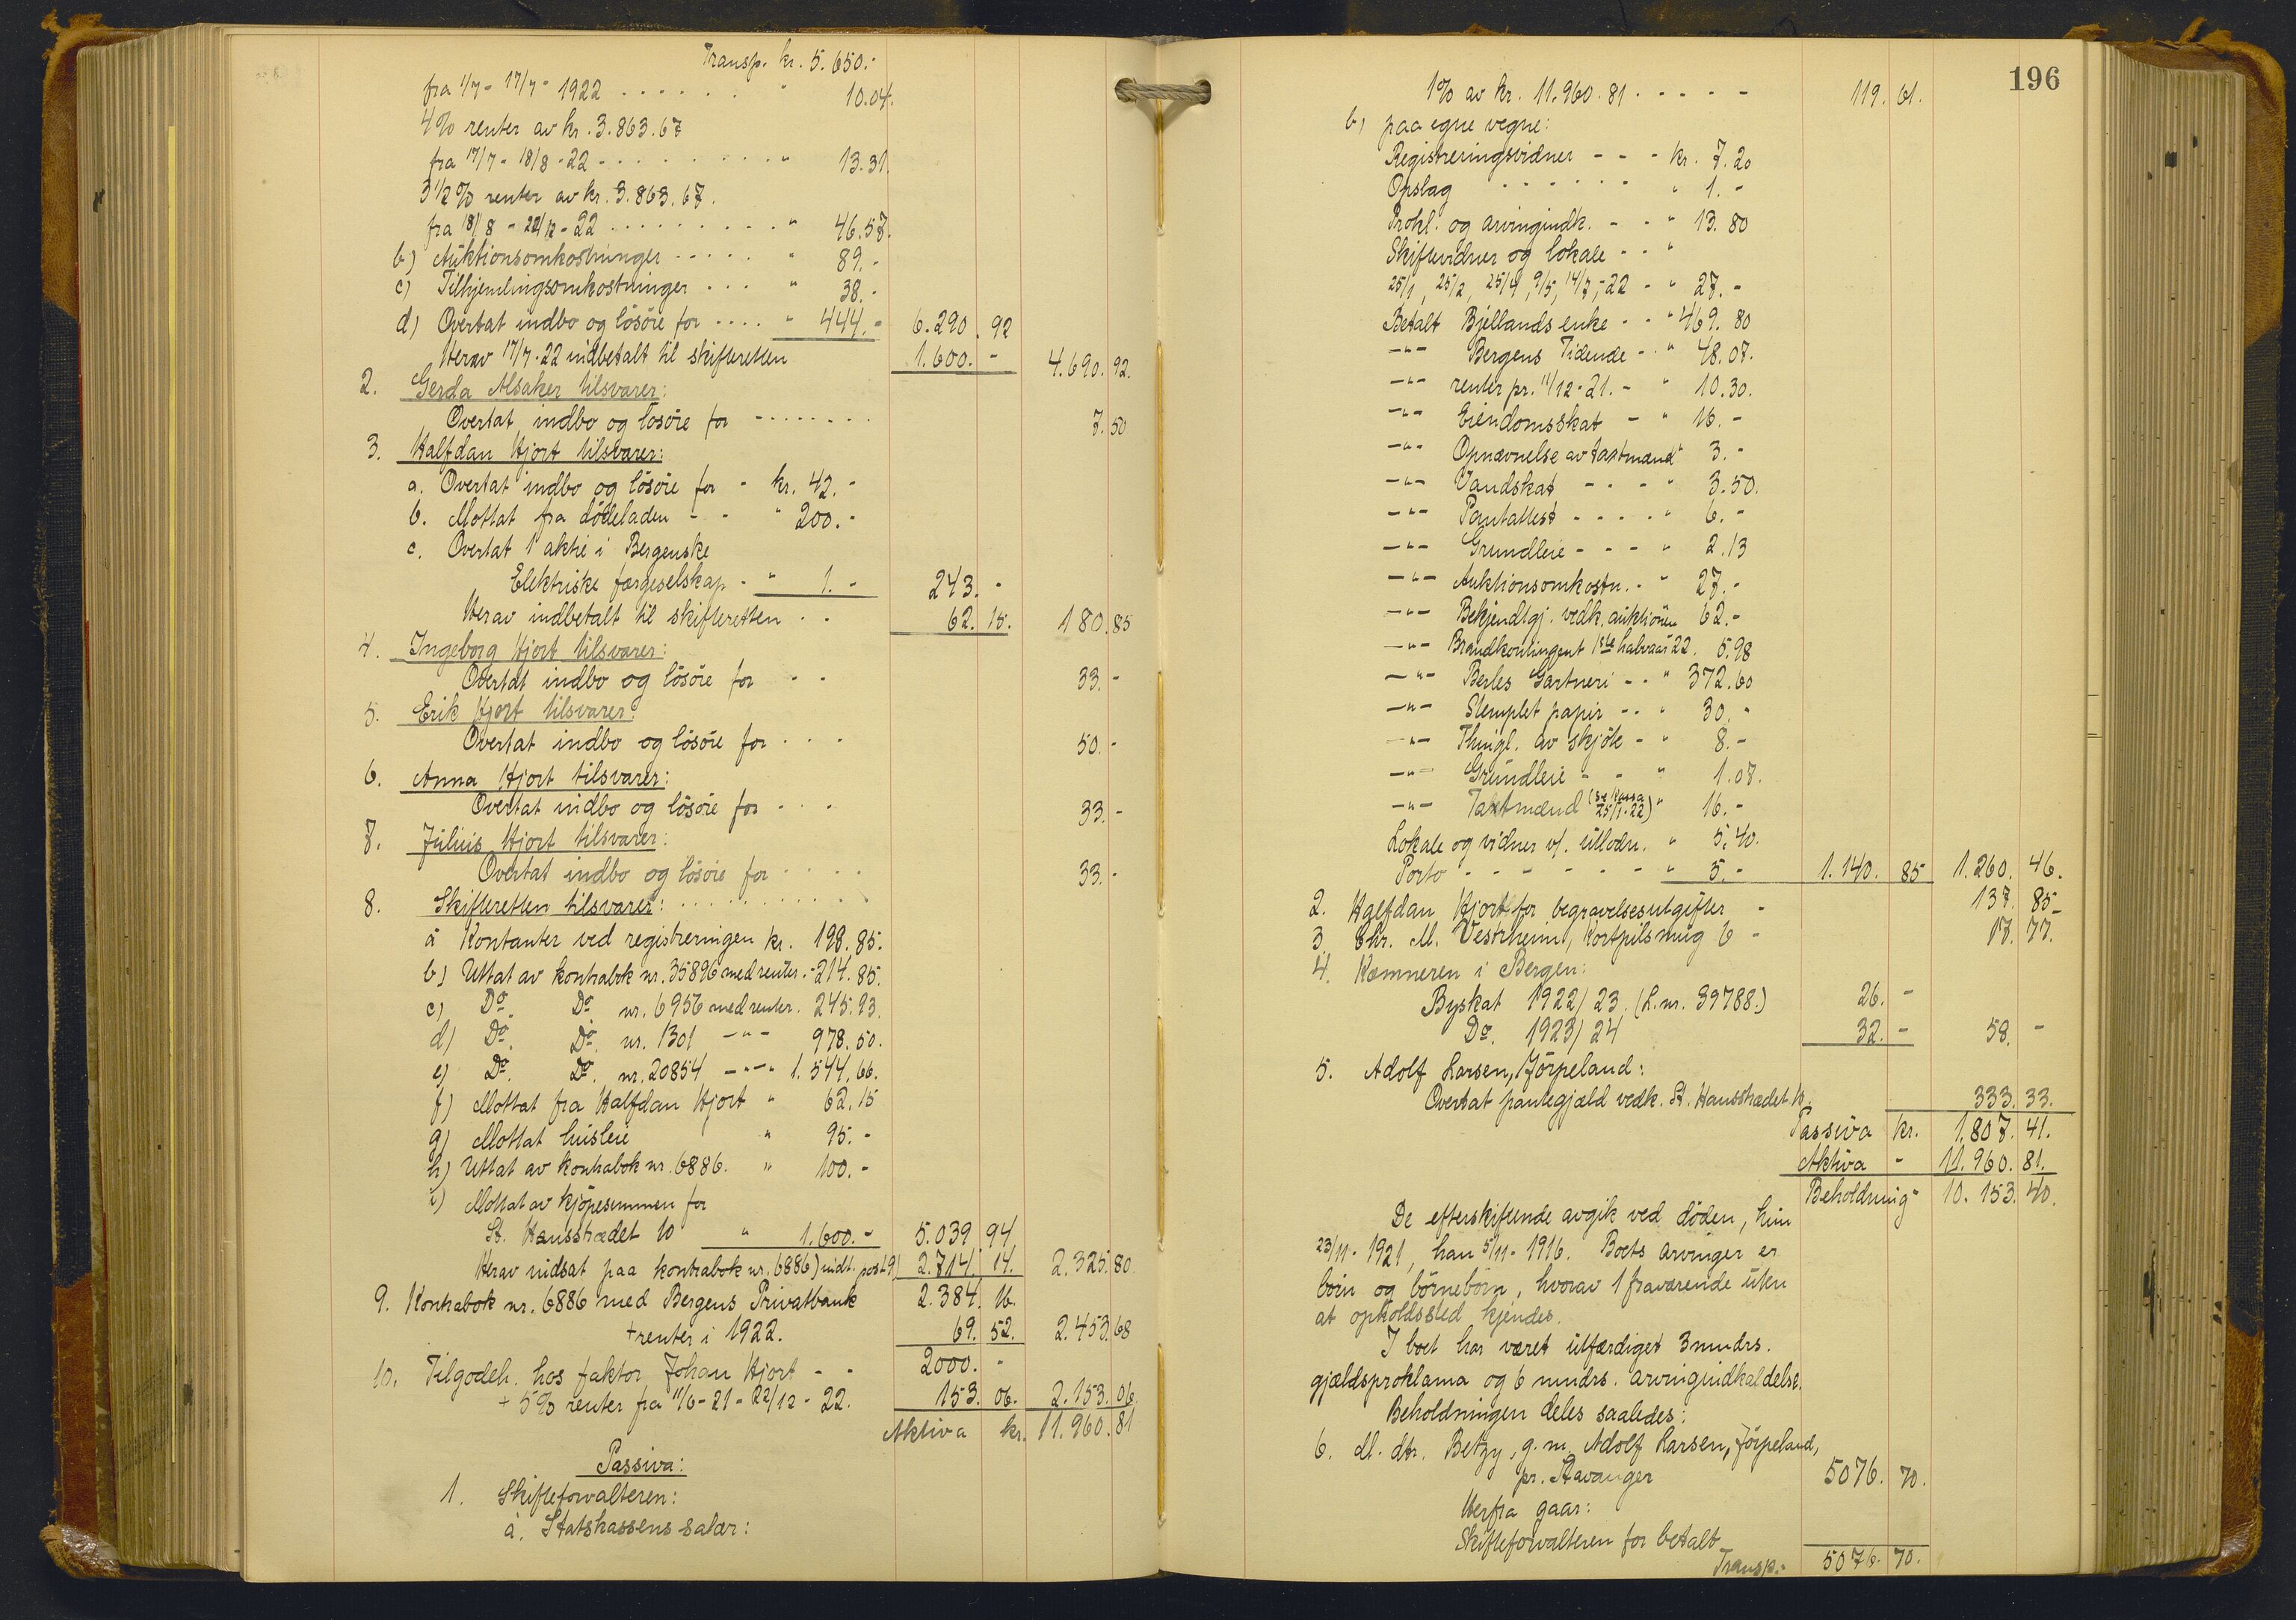 Transp. kr. 5.650.-
fra 1/7 - 17/7 - 1922 . . . . . . " 10.04.
4% renter av kr. 3.863.67
fra 17/7 - 18/8 - 22 - . . . . . . . . " 13.31.
3 1/2 % renter av kr. 3.863.67.
fra 18/8 - 22/12 - 22 . . . . . . . . . " 46.57.
b) Auktionsomkostninger - . . . . " 89.-
c) Tilhjemlingsomkostninger . . . " 38.-
d) Overtat indbo og lösöre for . . . . " 444.- 6.290.92
Herav 17/7-22 indbetalt til skifteretten 1.600.- 4.690.92.
2. Gerda Alsaker tilsvarer:
Overtat indbo og lösöre for - . . . . . . 7.50
3. Halfdan Hjort tilsvarer:
a. Overtat indbo og lösöre for - kr. 42.-
b. Mottat fra dödeladen - - " 200.-
c. Overtat 1 aktie i Bergenske
Elektriske færgeselskap - " 1.- 243.-
Herav indbetalt til skifteretten . . 62.15. 180.85
4. Ingeborg Hjort tilsvarer:
Overtat indbo og lösöre for - - 33.-
5. Erik Hjort tilsvarer:
Overtat indbo og lösöre for . . . 50.-
6. Anna Hjort tilsvarer:
Overtat indbo og lösöre for . . . 33.-
7. Julius Hjort tilsvarer:
Overtat indbo og lösöre for . . . . 33.-
8. Skifteretten tilsvarer: . . . . . . . . . .
a Kontanter ved registreringen kr. 198.85.
b) Uttat av kontrabok nr. 35896 med renter. - 214.85.
c) Do. Do. nr. 6956 med renter. 245.93.
d) Do. Do. nr. 1301 -"- 978.50.
e) Do. Do. nr. 20854 -"- " 1.544.66.
f) Mottat fra Halfdan Hjort " 62.15
g) Mottat husleie " 95.-
h) Uttat av kontrabok nr. 6886. " 100.-
i) Mottat av kjöpesummen for
St. Hansstrædet 10 " 1.600.- 5.039.94
Herav indsat paa kontrabok nr. 6886) indt. post 9) 2.714.14. 2.325.80.
9. Kontrabok nr. 6886 med Bergens Privatbank 2.384.16.
+ renter i 1922. 69.52. 2.453.68
10. Tilgodeh. hos faktor Johan Hjort - - 2000.-
+ 5% renter fra 11/6-21 - 22/12 - 22. 153.06. 2.153.06.
Aktiva kr. 11.960.81
Passiva:
1. Skifteforvalteren:
a. Statskassens salær:
196
1% av kr. 11.960.81 - - - - - 119.61.
b) paa egne vegne:
Registreringsvidner - - - kr. 7.20
Opslag - - - - - - " 1.-
Prokl. og arvingindk. - - " 13.80
Skiftevidner og lokale - - "
25/1, 25/2, 25/4, 9/5, 14/7,-22 - " 27.-
Betalt Bjellands enke - - " 469.80
-"- Bergens Tidende - - " 48.07.
-"- renter pr. 11/12-21. - " 10.30.
-"- Eiendomsskat - " 16.-
-"- Opnævnelse av taxtmænd " 3.-
-"- Vandskat - - - - " 3.50.
-"- Pantattest - - - - " 6.-
-"- Grundleie - - - " 2.13
-"- Auktionsomkostn. - " 27.-
-"- Bekjendtgj. vedk. auktionen 62.-
-"- Brandkontingent 1ste halvaar 22. 5.98
-"- Berles Gartneri - - " 372.60
-"- Stemplet papir - - " 30.-
-"- Thingl. av skjöte - " 8.-
-"- Grundleie - - " 1.07.
-"- Taxtmænd (se kassa 25/1-22) " 16.-
Lokale og vidner v/. utlodn. " 5.40.
Porto - - - - - - - " 5.- 1.140.85 1.260.46.
2. Halfdan Hjort for begravelsesutgifter - 137.85-
3. Chr. M. Vestrheim, Kortpilsmug 6 - 17.77.
4. Kæmneren i Bergen:
Byskat 1922/23. (L.nr. 39788.) 26.-
Do. 1923/24 32.- 58.-
5. Adolf Larsen, Jörpeland:
Overtat pantegjæld vedk. St. Hansstrædet 10. 333.33.
Passiva kr. 1.807.41.
Aktiva - 11.960.81.
Beholdning " 10.153.40.
De efterskiftende avgik ved döden, hun
23/11 - 1921, han 5/11 - 1916. Boets arvinger er
börn og börnebörn, hvorav 1 fraværende uten
at opholdssted kjendes.
I boet har været utfærdiget 3 mndrs.
gjældsproklama og 6 mndrs. arvingindkaldelse.
Beholdningen deles saaledes:
6. Al. dtr. Betzy, g.m. Adolf Larsen, Jörpeland,
pr. Stavanger 5076.70.
Herfra gaar:
Skifteforvalteren for betalt
Transp.- 5076.70.